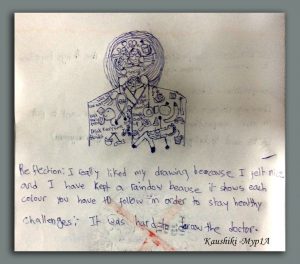 Reflection: I really liked my drawing because I felt nice
and I have kept a rainbow because it shows each
colour you have to follow in order to stay healthy
challenges: It was hard to draw the doctor.
Kaushiki -Myp1A